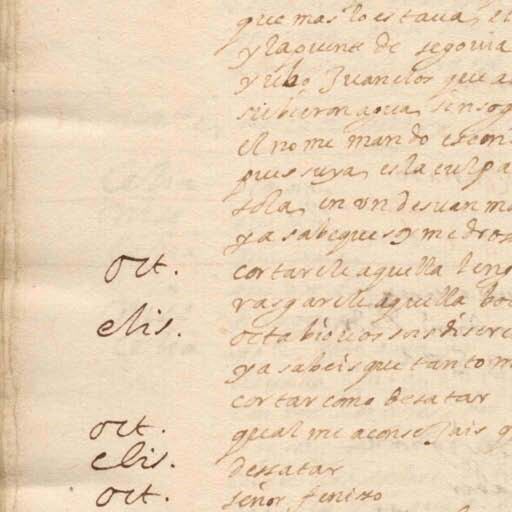 que mas lo estaua, el
y la puente de segouia
y ubo Juanelos que a
subieron agua, sin sog
el no me mando escon
pues suya, es la culpa
sola, en vn desuan me
ya sabe que soy medros
oct. cortarele aquella leng
rasgarele aquella boc
elis. octabio vos sois discre
ya sabeis que tanto m
cortar como desatar
oct. qual me aconsejais q
elis. desatar
oct. señor feniso